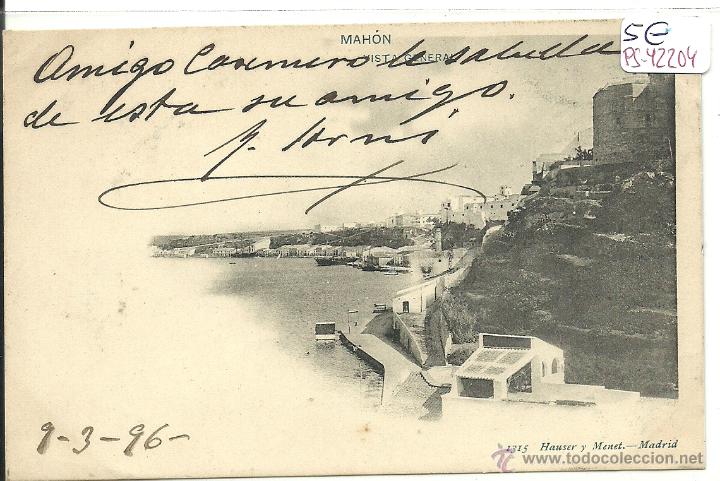 MAHÓN
VISTA GENERAL
5€
PS-42204
Amigo Casemiro le saluda
de esta su amigo.
9-3-96-
1315 Hauser y Menet.—Madrid
© www.todocoleccion.net